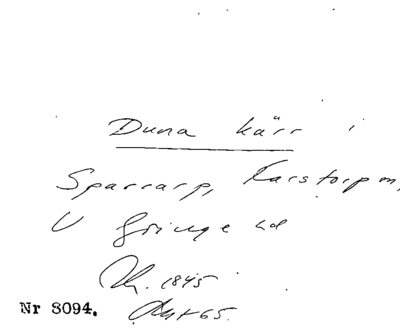 Duna kärr i
Sparrarp, Karstorp m,
V Göinge hd
1845
Nr 8094. 65.